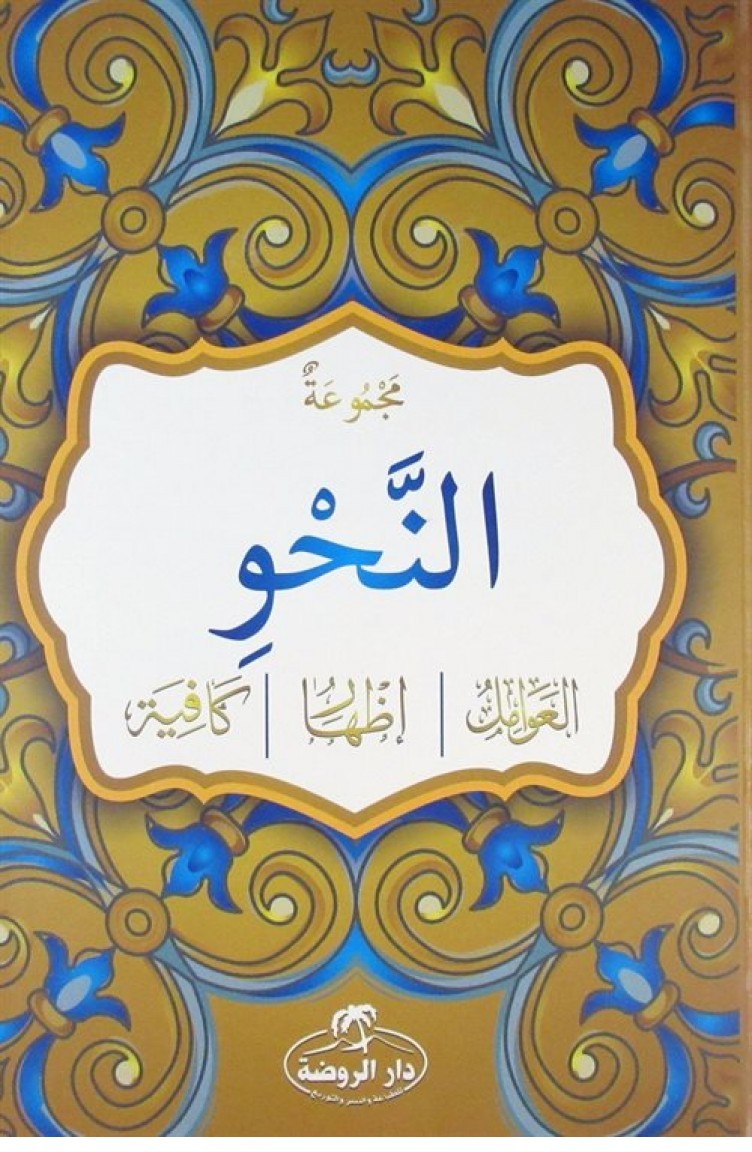 مَجْمُوعَةٌ
النَّحْوِ
العَوَامِلُ | إظْهَارُ | كَافِيَة
دار الروضة
للطباعة والنشر والتوزيع